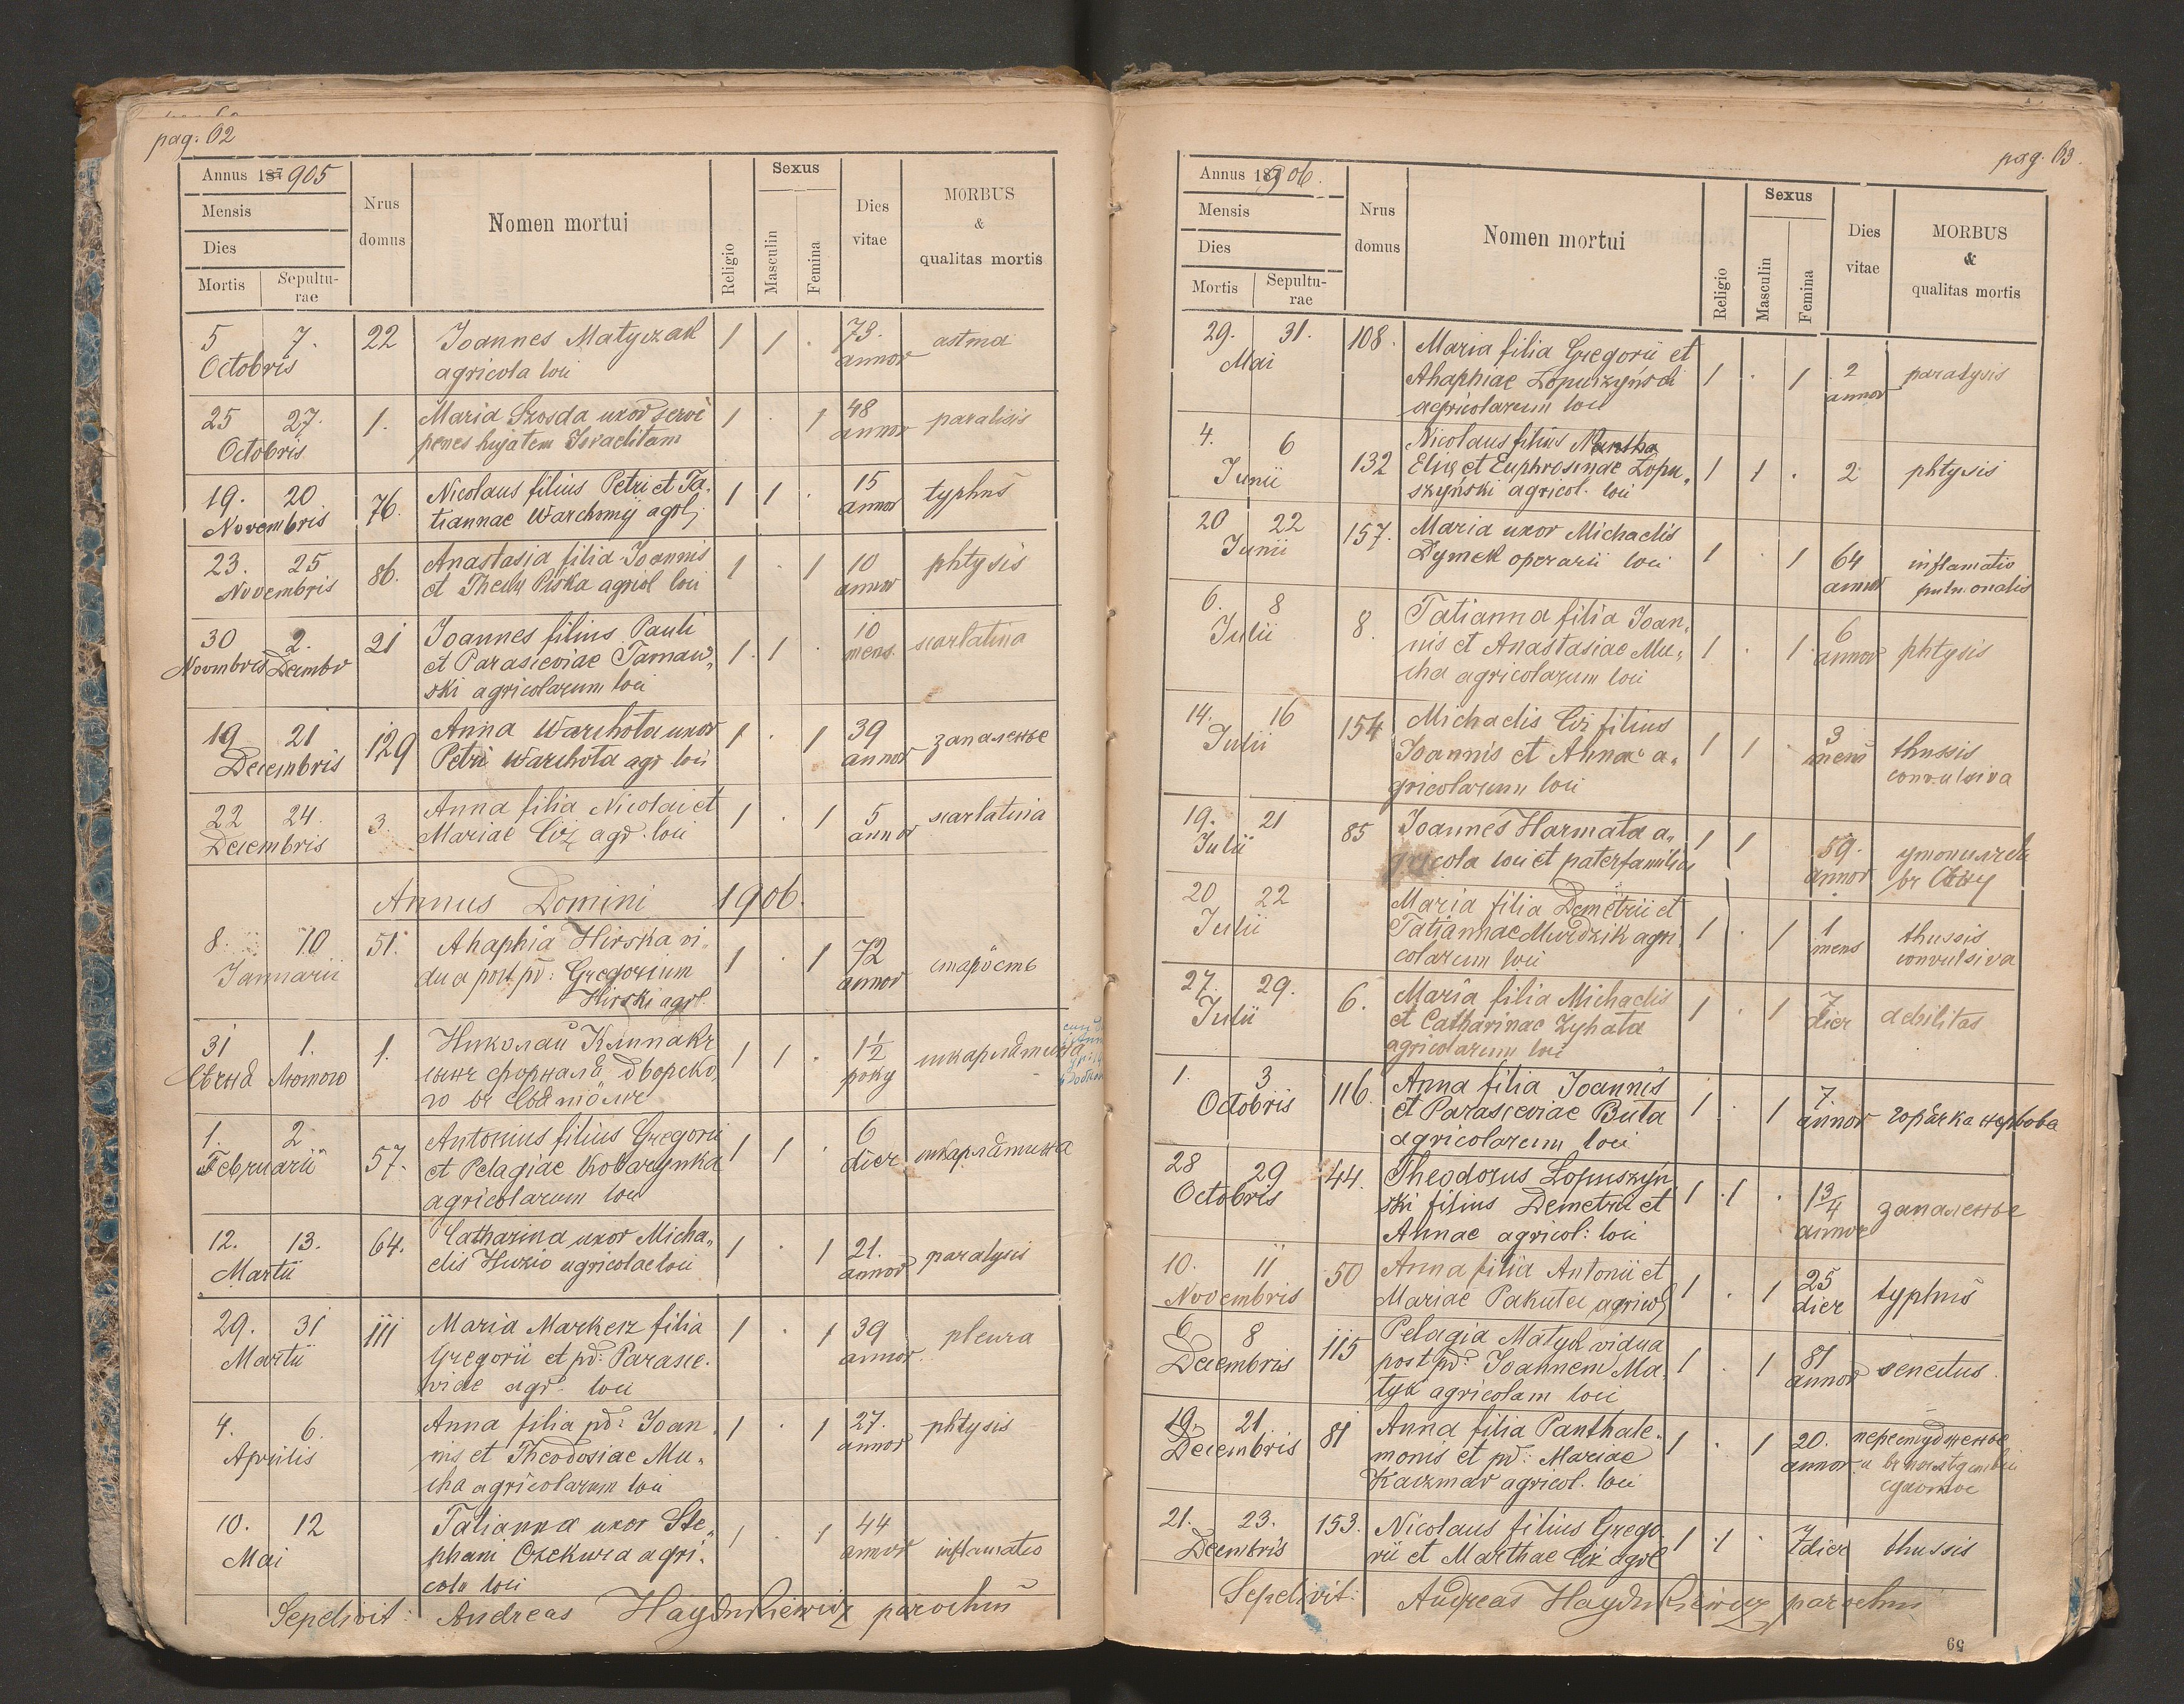 pag. 62
Annus 187 905
Mensis
Dies
Mortis
Sepulturae
Nrus domus
Nomen mortui
Religio
Sexus
Masculin
Femina
Dies vitae
MORBUS
&
qualitas mortis
5 7. 22 Joannes Matyczak 1 1 . 73. astma
Octobris agricola loci annor
25 27. 1. Maria Szosda uxor servi 1 . 1 48 paralisis
Octobris penes hujatem Israelitam annor
19. 20 76. Nicolaus filius Petri et Ta- 1 1 . 15 typhus
Novembris tiannae Warchomij agrl annor
23. 25 86. Anastasia filia Joannis 1 . 1 10 phtysis
Novembris et Thecly Piska agricol loci annor
30 2. 21 Joannes filius Pauli 1 1 . 10 scarlatina
Novmbris Decmbr et Parasceviae Tarnaw- mens.
ski agricolarum loci
19 21 129 Anna Warchota uxor 1 . 1 39 запаленье
Decembris Petri Warchota agr loci annor
22 24. 3. Anna filia Nicolai et 1 . 1 5 scarlatina
Decembris Mariae Ciż agr. loci annor
Annus Domini 1906.
8. 10 51. Ahaphia Hirska vi- 1 . 1 72 старость
Januarii dua post pd: Gregorium annor
Hirski agrl.
31 1. 1. Николай 1 1 . 1½ шкарлятина
Сѣчня Лютого сынъ форналя дворско- року
го въ
1. 2 57. Antonius filius Gregorii 1 1 . 6 шкарлятина
Februarii et Pelagiae Kobarynka dier
agricolarum loci
12. 13. 64. Catharina uxor Micha- 1 . 1 21. paralysis
Martii elis Huzio agricolae loci annor
29. 31 111 Maria Markerz filia 1 . 1 39 pleura
Martii Gregorii et pd: Parasce- annor.
viae agr. loci
4. 6. Anna filia pd: Joan- 1 . 1 27. phtysis
Aprilis nis et Theodosiae Mu- annor
cha agricolarum loci
10. 12 Tatianna uxor Ste- 1 . 1 44 inflamatio
Mai phani Czekura agri- annor
cola loci
Sepelivit: Andreas Haydukiewicz parochus
pag. 63.
Annus 187 906.
Mensis
Dies
Mortis
Sepulturae
Nrus domus
Nomen mortui
Religio
Sexus
Masculin
Femina
Dies vitae
MORBUS
&
qualitas mortis
29. 31. 108. Maria filia Gregorii et
Mai Ahaphiae Łopuszyński 1 . 1 2 paralysis
agricolarum loci annor
4. 6 Nicolaus filius Mantha
Junii 132 Eliae et Euphrosinae Łopu- 1 1 . 2 phtysis
szyński agricol. loci
20 22 157. Maria uxor Michaelis
Junii Dymek operarii loci 1 . 1 64 inflamatio
annor pulmonalis
6. 8 8. Tatianna filia Joan-
Julii nis et Anastasiae Mu- 1 . 1 6 phtysis
cha agricolarum loci annor
14. 16 154 Michaelis Ciż filius
Julii Joannis et Annae a- 1 1 3 thussis
gricolarum loci mens convulsiva
19. 21 85 Joannes Harmata a- 1 1 59. утопился
Julii gricola loci et paterfamilias annor въ Сяну
20 22 Maria filia Demetrii et
Julii Tatiannae Murdzik agri- 1 . 1 1 thussis
colarum loci mens convulsiva
27. 29. 6. Maria filia Michaelis 1 . 1 7 debilitas
Julii et Catharinae Zyhata dier
agricolarum loci
1. 3 116. Anna filia Joannis 1 . 1 7.
Octobris et Parasceviae Buta annor горячка нервова
agricolarum loci
28 29 44. Theodorus Łopuszyń- 1 1 . 1¾ запаленье
Octobris ski filius Demetrii et annor
Annae agricol: loci
10. 11 50 Anna filia Antonii et 1 . 1 25 typhus
Novembris Mariae Pakuta agricol dier
6 8 115 Pelagia Matyk vidua
Decembris post pd: Joannem Ma- 1 . 1 81 senectus
tyk agricolam loci annor
19. 21. 81 Anna filia Panthale- 1 . 1 20. перестудженье
Decembris monis et pd: Mariae annor
Kaczmar agricol. loci
21. 23. 153. Nicolaus filius Grego- 1 1 . 7 dier thussis
Decmbris rii et Marthae Ciż agrl
Sepelivit: Andreas Haydukiewicz parochus
59